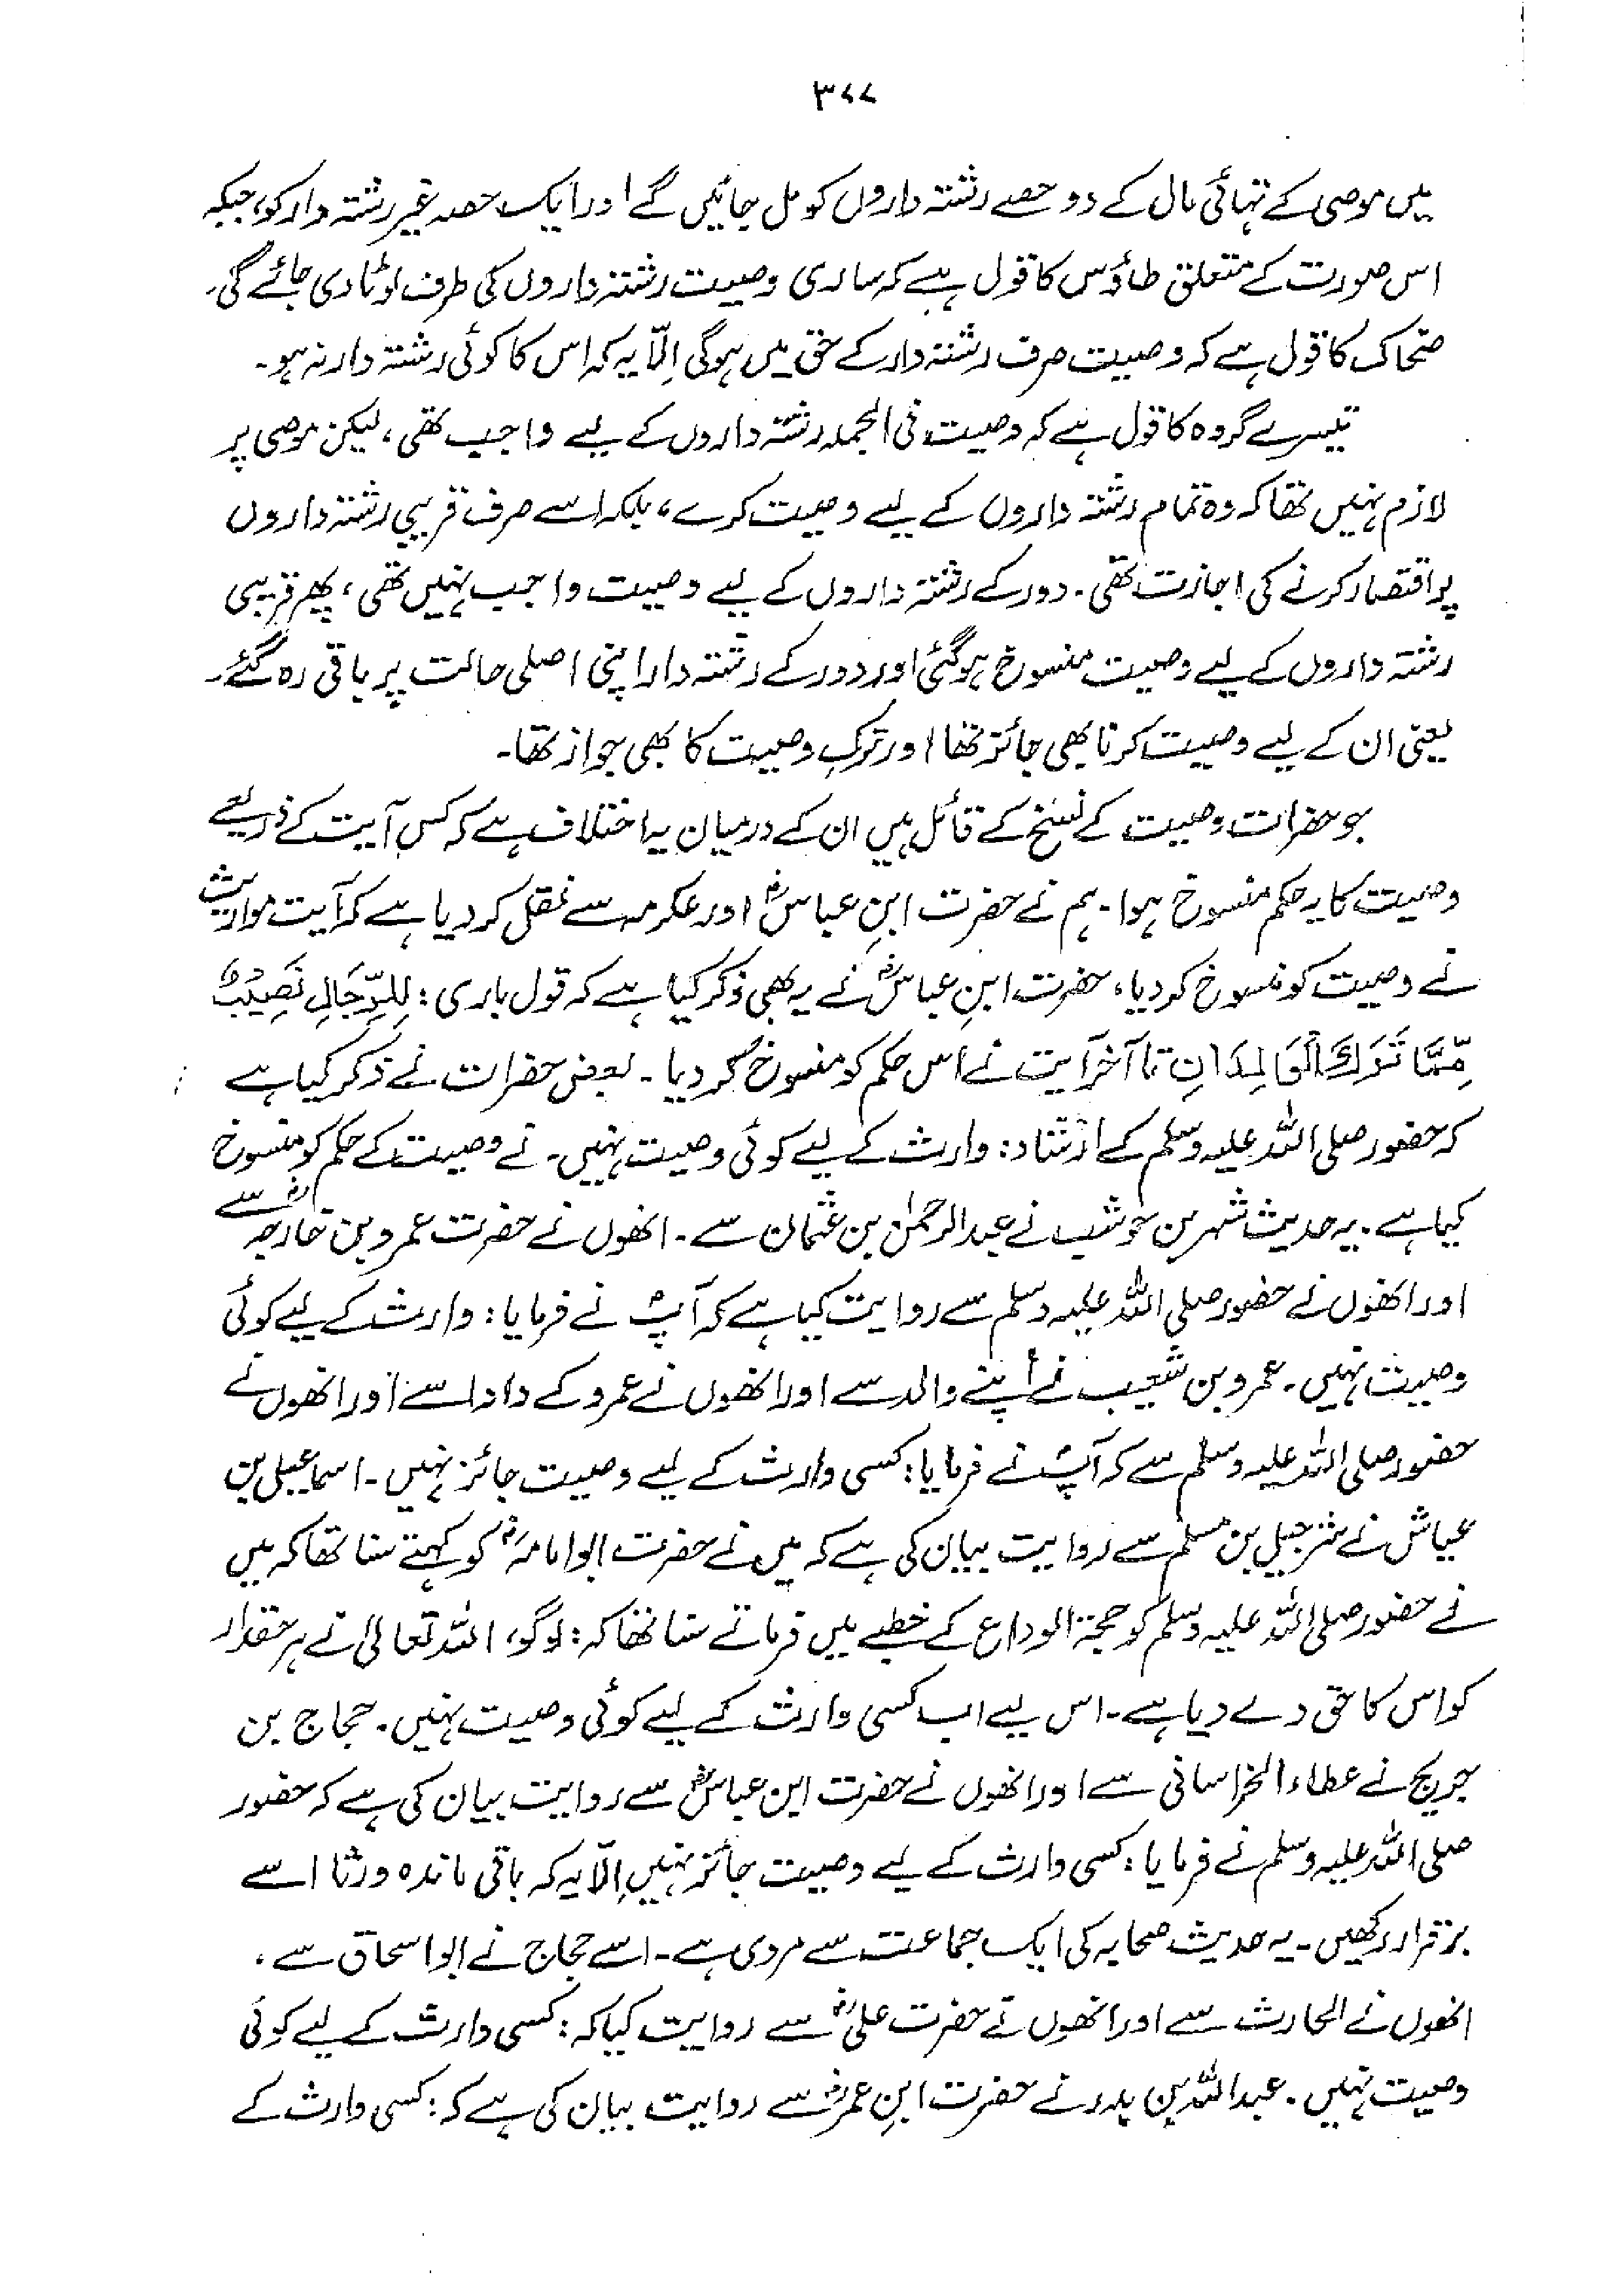 ۳۷۷
میں موصی کے تہائی مال کے دو حصے رشتہ داروں کو مل جائیں گے اور ایک حصہ غیر رشتہ دار کو، جبکہ
اس صورت کے متعلق طاؤس کا قول ہے کہ ساری وصیت رشتہ داروں کی طرف لوٹا دی جائے گی۔
ضحاک کا قول ہے کہ وصیت صرف رشتہ دار کے حق میں ہوگی اِلّا یہ کہ اس کا کوئی رشتہ دار نہ ہو۔
تیسرے گروہ کا قول ہے کہ وصیت فی الجملہ رشتہ داروں کے لیے واجب تھی، لیکن موصی پر
لازم نہیں تھا کہ وہ تمام رشتہ داروں کے لیے وصیت کرے، بلکہ اسے صرف قریبی رشتہ داروں
پر اقتصار کرنے کی اجازت تھی۔ دور کے رشتہ داروں کے لیے وصیت واجب نہیں تھی، پھر قریبی
رشتہ داروں کے لیے وصیت منسوخ ہوگئی اور دور کے رشتہ دار اپنی اصلی حالت پر باقی رہ گئے۔
یعنی ان کے لیے وصیت کرنا بھی جائز تھا اور ترکِ وصیت کا بھی جواز تھا۔
جو حضرات وصیت کے نسخ کے قائل ہیں ان کے درمیان یہ اختلاف ہے کہ کس آیت کے ذریعے
وصیت کا یہ حکم منسوخ ہوا۔ ہم نے حضرت ابنِ عباسؓ اور عکرمہ سے نقل کر دیا ہے کہ آیت مواریث
نے وصیت کو منسوخ کر دیا، حضرت ابنِ عباسؓ نے یہ بھی ذکر کیا ہے کہ قول باری: لِلرِّجَالِ نَصِيْبٌ
مِّمَّا تَرَكَ الْوَالِدَانِ تا آخر آیت نے اس حکم کو منسوخ کر دیا۔ بعض حضرات نے ذکر کیا ہے
کہ حضور صلی اللہ علیہ وسلم کے ارشاد: وارث کے لیے کوئی وصیت نہیں۔ نے وصیت کے حکم کو منسوخ
کیا ہے۔ یہ حدیث شہر بن حوشب نے عبدالرحمٰن بن عثمان سے۔ انھوں نے حضرت عمرو بن خارجہؓ سے
اور انھوں نے حضور صلی اللہ علیہ وسلم سے روایت کیا ہے کہ آپؐ نے فرمایا: وارث کے لیے کوئی
وصیت نہیں۔ عمرو بن شعیب نے اپنے والد سے اور انھوں نے عمرو کے دادا سے اور انھوں نے
حضور صلی اللہ علیہ وسلم سے کہ آپؐ نے فرمایا: کسی وارث کے لیے وصیت جائز نہیں۔ اسماعیل بن
عیاش نے شرحبیل بن مسلم سے روایت بیان کی ہے کہ میں نے حضرت ابوامامہؓ کو کہتے سنا تھا کہ میں
نے حضور صلی اللہ علیہ وسلم کو حجۃ الوداع کے خطبے میں فرماتے سنا تھا کہ: لوگو، اللہ تعالیٰ نے ہر حقدار
کو اس کا حق دے دیا ہے۔ اس لیے اب کسی وارث کے لیے کوئی وصیت نہیں۔ حجاج بن
جریج نے عطاء الخراسانی سے اور انھوں نے حضرت ابن عباسؓ سے روایت بیان کی ہے کہ حضور
صلی اللہ علیہ وسلم نے فرمایا: کسی وارث کے لیے وصیت جائز نہیں اِلّا یہ کہ باقی ماندہ ورثا اسے
برقرار رکھیں۔ یہ حدیث صحابہ کی ایک جماعت سے مروی ہے۔ اسے حجاج نے ابو اسحاق سے،
انھوں نے الحارث سے اور انھوں نے حضرت علیؓ سے روایت کیا کہ: کسی وارث کے لیے کوئی
وصیت نہیں۔ عبداللہ بن بدر نے حضرت ابنِ عمرؓ سے روایت بیان کی ہے کہ: کسی وارث کے